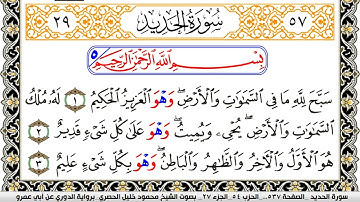 ٥٧ سُورَةُ الْحَدِيدِ ٢٩
بِسْمِ اللَّهِ الرَّحْمَٰنِ الرَّحِيمِ
سَبَّحَ لِلَّهِ مَا فِي السَّمَٰوَٰتِ وَالْأَرْضِ وَهْوَ الْعَزِيزُ الْحَكِيمُ ١ لَهُ مُلْكُ
السَّمَٰوَٰتِ وَالْأَرْضِ يُحْيِۦ وَيُمِيتُ وَهْوَ عَلَىٰ كُلِّ شَيْءٍ قَدِيرٌ ٢
هُوَ الْأَوَّلُ وَالْآخِرُ وَالظَّٰهِرُ وَالْبَاطِنُ وَهْوَ بِكُلِّ شَيْءٍ عَلِيمٌ ٣
سورة الحديد _ الصفحة ٥٣٧_ الحزب ٥٤ _ الجزء ٢٧ _ بصوت الشيخ محمود خليل الحصري _ برواية الدوري عن أبي عمرو